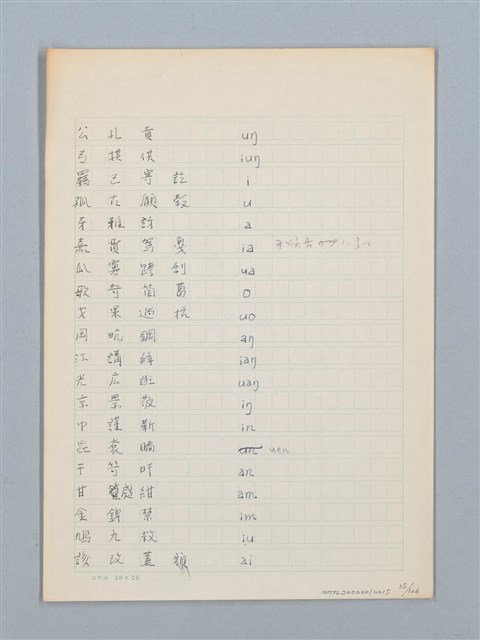 公 孔 貢 uŋ
弓 拱 供 iuŋ
羈 己 寄 訖 i
孤 古 顧 穀 u
牙 雅 訝 a
嘉 賈 駕 戛 ia
瓜 寡 跨 刮 ua
歌 哿 箇 葛 o
戈 果 過 括 uo
岡 㽘 鋼 aŋ
江 講 絳 iaŋ
光 広 uaŋ
京 景 敬 iŋ
巾 謹 靳 in
昆 袞 uən
干 笴 旰 an
甘 感 紺 am
金 錦 禁 im
鳩 九 救 iu
該 改 蓋 ai
コクヨ 20×20
NMTL20000010015 25/106